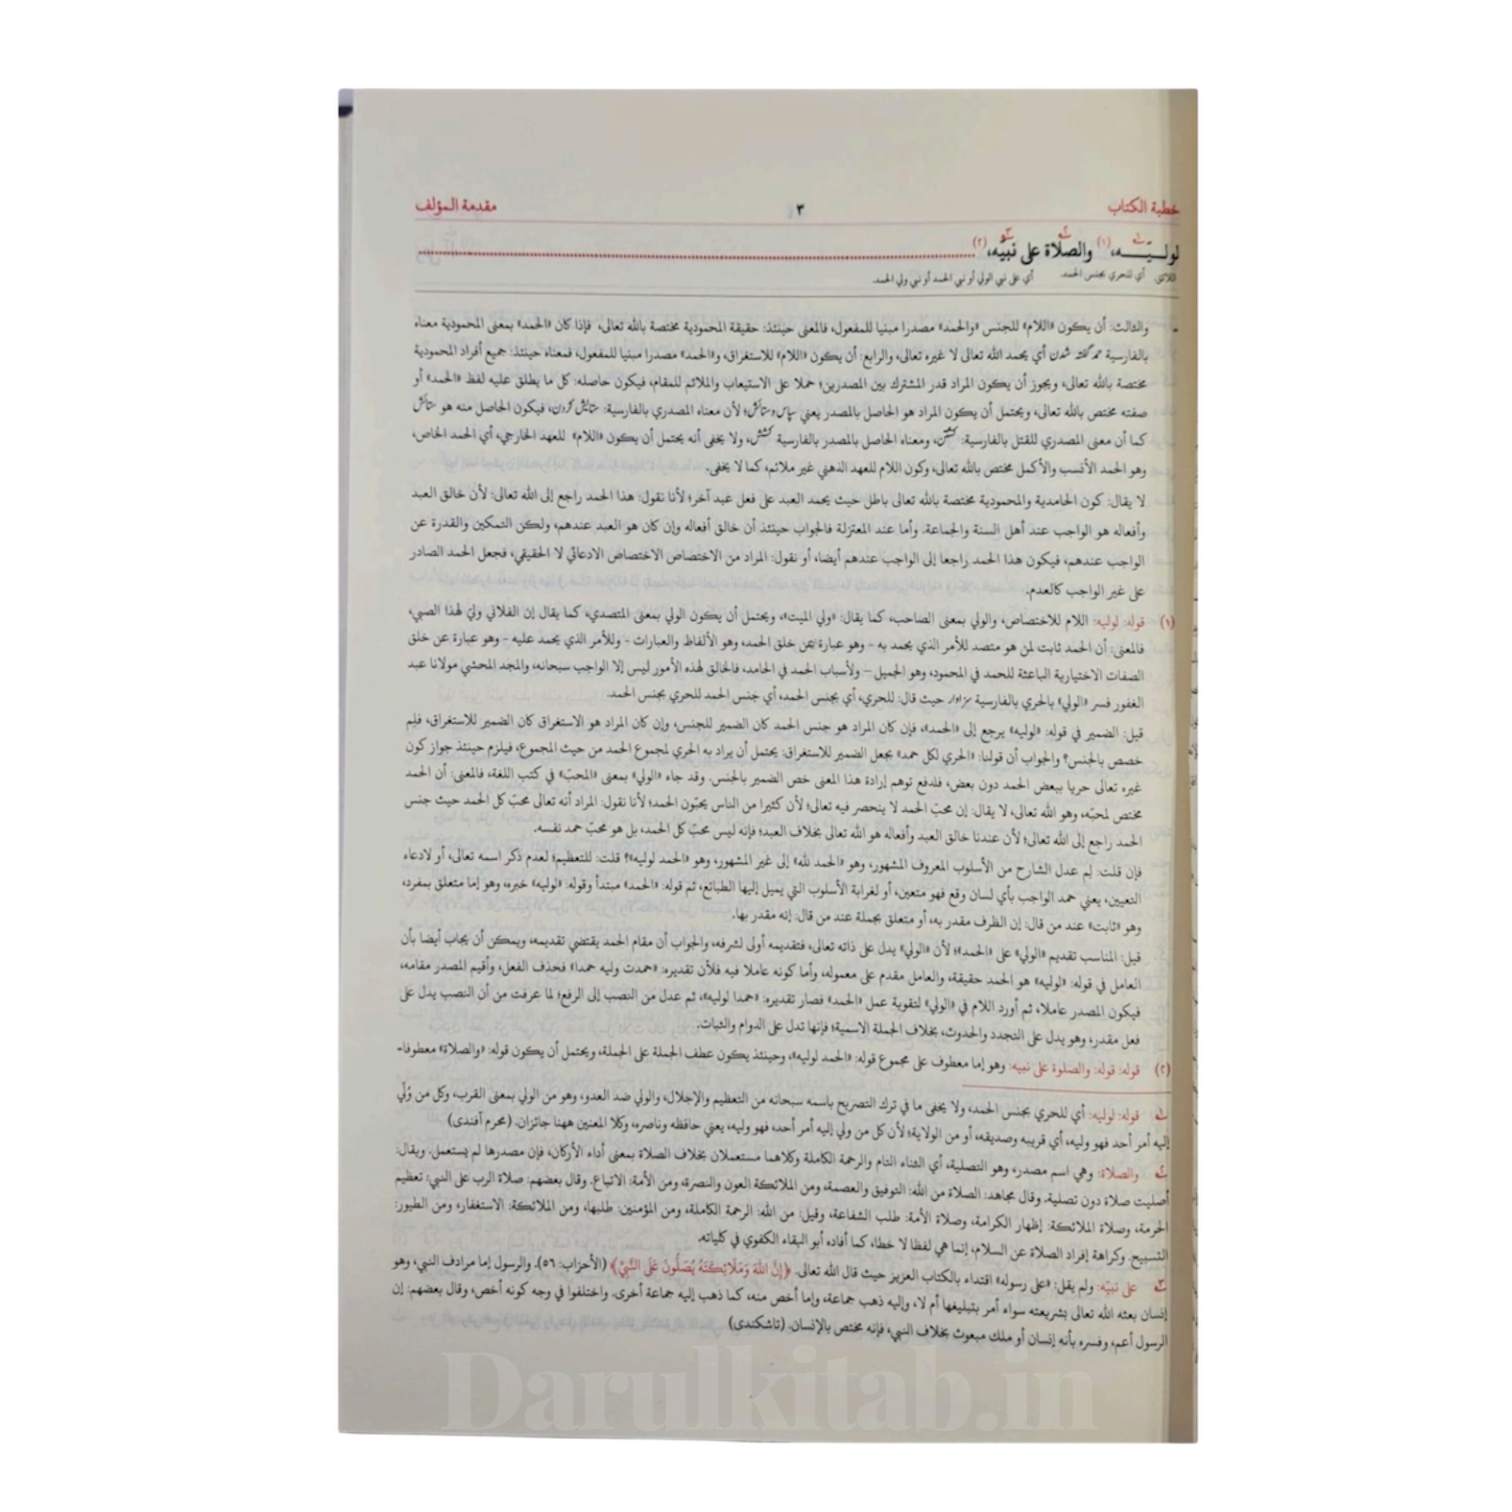 خطبة الكتاب ٣ مقدمة المؤلف
لوليـــه،(١) والصلاة على نبيّه،(٢)
اللائق. أي للحري بجنس الحمد. أي على نبي الولي أو نبي الحمد أو نبي ولي الحمد.
والثالث: أن يكون «اللام» للجنس «والحمد» مصدرا مبنيا للمفعول، فالمعنى حينئذ: حقيقة المحمودية مختصة بالله تعالى، فإذا كان «الحمد» بمعنى المحمودية معناه
بالفارسية شدن أي يحمد الله تعالى لا غيره تعالى، والرابع: أن يكون «اللام» للاستغراق، و«الحمد» مصدرا مبنيا للمفعول، فمعناه حينئذ: جميع أفراد المحمودية
مختصة بالله تعالى، ويجوز أن يكون المراد قدر المشترك بين المصدرين؛ حملا على الاستيعاب والملائم للمقام، فيكون حاصله: كل ما يطلق عليه لفظ «الحمد» أو
صفته مختص بالله تعالى، ويحتمل أن يكون المراد هو الحاصل بالمصدر يعني سپاس وستائش؛ لأن معناه المصدري بالفارسية: ستائش كردن، فيكون الحاصل منه هو ستائش
كما أن معنى المصدري للقتل بالفارسية: كشتن، ومعناه الحاصل بالمصدر بالفارسية كشش، ولا يخفى أنه يحتمل أن يكون «اللام» للعهد الخارجي، أي الحمد الخاص،
وهو الحمد الأنسب والأكمل مختص بالله تعالى، وكون اللام للعهد الذهني غير ملائم، كما لا يخفى.
لا يقال: كون الحامدية والمحمودية مختصة بالله تعالى باطل حيث يحمد العبد على فعل عبد آخر؛ لأنا نقول: هذا الحمد راجع إلى الله تعالى؛ لأن خالق العبد
وأفعاله هو الواجب عند أهل السنة والجماعة. وأما عند المعتزلة فالجواب حينئذ أن خالق أفعاله وإن كان هو العبد عندهم، ولكن التمكين والقدرة عن
الواجب عندهم، فيكون هذا الحمد راجعا إلى الواجب عندهم أيضا، أو نقول: المراد من الاختصاص الاختصاص الادعائي لا الحقيقي، فجعل الحمد الصادر
على غير الواجب كالعدم.
(١) قوله: لوليه: اللام للاختصاص، والولي بمعنى الصاحب، كما يقال: «ولي الميت»، ويحتمل أن يكون الولي بمعنى المتصدي، كما يقال إن الفلاني ولي لهذا الصبي،
فالمعنى: أن الحمد ثابت لمن هو متصد للأمر الذي يحمد به - وهو عبارة عن خلق الحمد، وهو الألفاظ والعبارات - وللأمر الذي يحمد عليه - وهو عبارة عن خلق
الصفات الاختيارية الباعثة للحمد في المحمود، وهو الجميل – ولأسباب الحمد في الحامد، فالخالق لهذه الأمور ليس إلا الواجب سبحانه، والمجد المحشي مولانا عبد
الغفور فسر «الولي» بالحري بالفارسية سزاوار حيث قال: للحري، أي بجنس الحمد، أي جنس الحمد للحري بجنس الحمد.
قيل: الضمير في قوله: «لوليه» يرجع إلى «الحمد»، فإن كان المراد هو جنس الحمد كان الضمير للجنس، وإن كان المراد هو الاستغراق كان الضمير للاستغراق، فلِم
خصص بالجنس؟ والجواب أن قولنا: «الحري لكل حمد» بجعل الضمير للاستغراق: يحتمل أن يراد به الحري لمجموع الحمد من حيث المجموع، فيلزم حينئذ جواز كون
غيره تعالى حريا ببعض الحمد دون بعض، فلدفع توهم إرادة هذا المعنى خص الضمير بالجنس. وقد جاء «الولي» بمعنى «المحبّ» في كتب اللغة، فالمعنى: أن الحمد
مختص لمحبّه، وهو الله تعالى، لا يقال: إن محبّ الحمد لا ينحصر فيه تعالى؛ لأن كثيرا من الناس يحبّون الحمد؛ لأنا نقول: المراد أنه تعالى محبّ كل الحمد حيث جنس
الحمد راجع إلى الله تعالى؛ لأن عندنا خالق العبد وأفعاله هو الله تعالى بخلاف العبد؛ فإنه ليس محبّ كل الحمد، بل هو محبّ حمد نفسه.
فإن قلت: لِم عدل الشارح من الأسلوب المعروف المشهور، وهو «الحمد لله» إلى غير المشهور، وهو «الحمد لوليه»؟ قلت: للتعظيم؛ لعدم ذكر اسمه تعالى، أو لادعاء
التعيين، يعني حمد الواجب بأي لسان وقع فهو متعين، أو لغرابة الأسلوب التي يميل إليها الطبائع، ثم قوله: «الحمد» مبتدأ وقوله: «لوليه» خبره، وهو إما متعلق بمفرد،
وهو «ثابت» عند من قال: إن الظرف مقدر به، أو متعلق بجملة عند من قال: إنه مقدر بها.
قيل: المناسب تقديم «الولي» على «الحمد»؛ لأن «الولي» يدل على ذاته تعالى، فتقديمه أولى لشرفه، والجواب أن مقام الحمد يقتضي تقديمه، ويمكن أن يجاب أيضا بأن
العامل في قوله: «لوليه» هو الحمد حقيقة، والعامل مقدم على معموله، وأما كونه عاملا فيه فلأن تقديره: «حمدت وليه حمدا» فحذف الفعل، وأقيم المصدر مقامه،
فيكون المصدر عاملا، ثم أورد اللام في «الولي» لتقوية عمل «الحمد» فصار تقديره: «حمدا لوليه»، ثم عدل من النصب إلى الرفع؛ لما عرفت من أن النصب يدل على
فعل مقدر، وهو يدل على التجدد والحدوث، بخلاف الجملة الاسمية؛ فإنها تدل على الدوام والثبات.
(٢) قوله: قوله: والصلوة على نبيه: وهو إما معطوف على مجموع قوله: «الحمد لوليه»، وحينئذ يكون عطف الجملة على الجملة، ويحتمل أن يكون قوله: «والصلاة» معطوفا-
قوله: لوليه: أي للحري بجنس الحمد، ولا يخفى ما في ترك التصريح باسمه سبحانه من التعظيم والإجلال، والولي ضد العدو، وهو من الولي بمعنى القرب، وكل من وُلّي
إليه أمر أحد فهو وليه، أي قريبه وصديقه، أو من الولاية؛ لأن كل من ولي إليه أمر أحد، فهو وليه، يعني حافظه وناصره، وكلا المعنين ههنا جائزان. (محرم آفندى)
والصلاة: وهي اسم مصدر، وهو التصلية، أي الثناء التام والرحمة الكاملة وكلاهما مستعملان بخلاف الصلاة بمعنى أداء الأركان، فإن مصدرها لم يستعمل. ويقال:
أصليت صلاة دون تصلية. وقال مجاهد: الصلاة من الله: التوفيق والعصمة، ومن الملائكة العون والنصرة، ومن الأمة: الاتباع. وقال بعضهم: صلاة الرب على النبي: تعظيم
الحرمة، وصلاة الملائكة: إظهار الكرامة، وصلاة الأمة: طلب الشفاعة، وقيل: من الله: الرحمة الكاملة، ومن المؤمنين: طلبها، ومن الملائكة: الاستغفار، ومن الطيور:
التسبيح. وكراهة إفراد الصلاة عن السلام، إنما هي لفظا لا خطا، كما أفاده أبو البقاء الكفوي في كلياته.
على نبيّه: ولم يقل: «على رسوله» اقتداء بالكتاب العزيز حيث قال الله تعالى. ﴿إِنَّ اللهَ وَمَلَائِكَتَهُ يُصَلُّونَ عَلَى النَّبِيِّ﴾ (الأحزاب: ٥٦). والرسول إما مرادف النبي، وهو
إنسان بعثه الله تعالى بشريعته سواء أمر بتبليغها أم لا، وإليه ذهب جماعة، وإما أخص منه، كما ذهب إليه جماعة أخرى. واختلفوا في وجه كونه أخص، وقال بعضهم: إن
الرسول أعم، وفسره بأنه إنسان أو ملك مبعوث بخلاف النبي، فإنه مختص بالإنسان. (تاشكندى)
Darulkitab.in